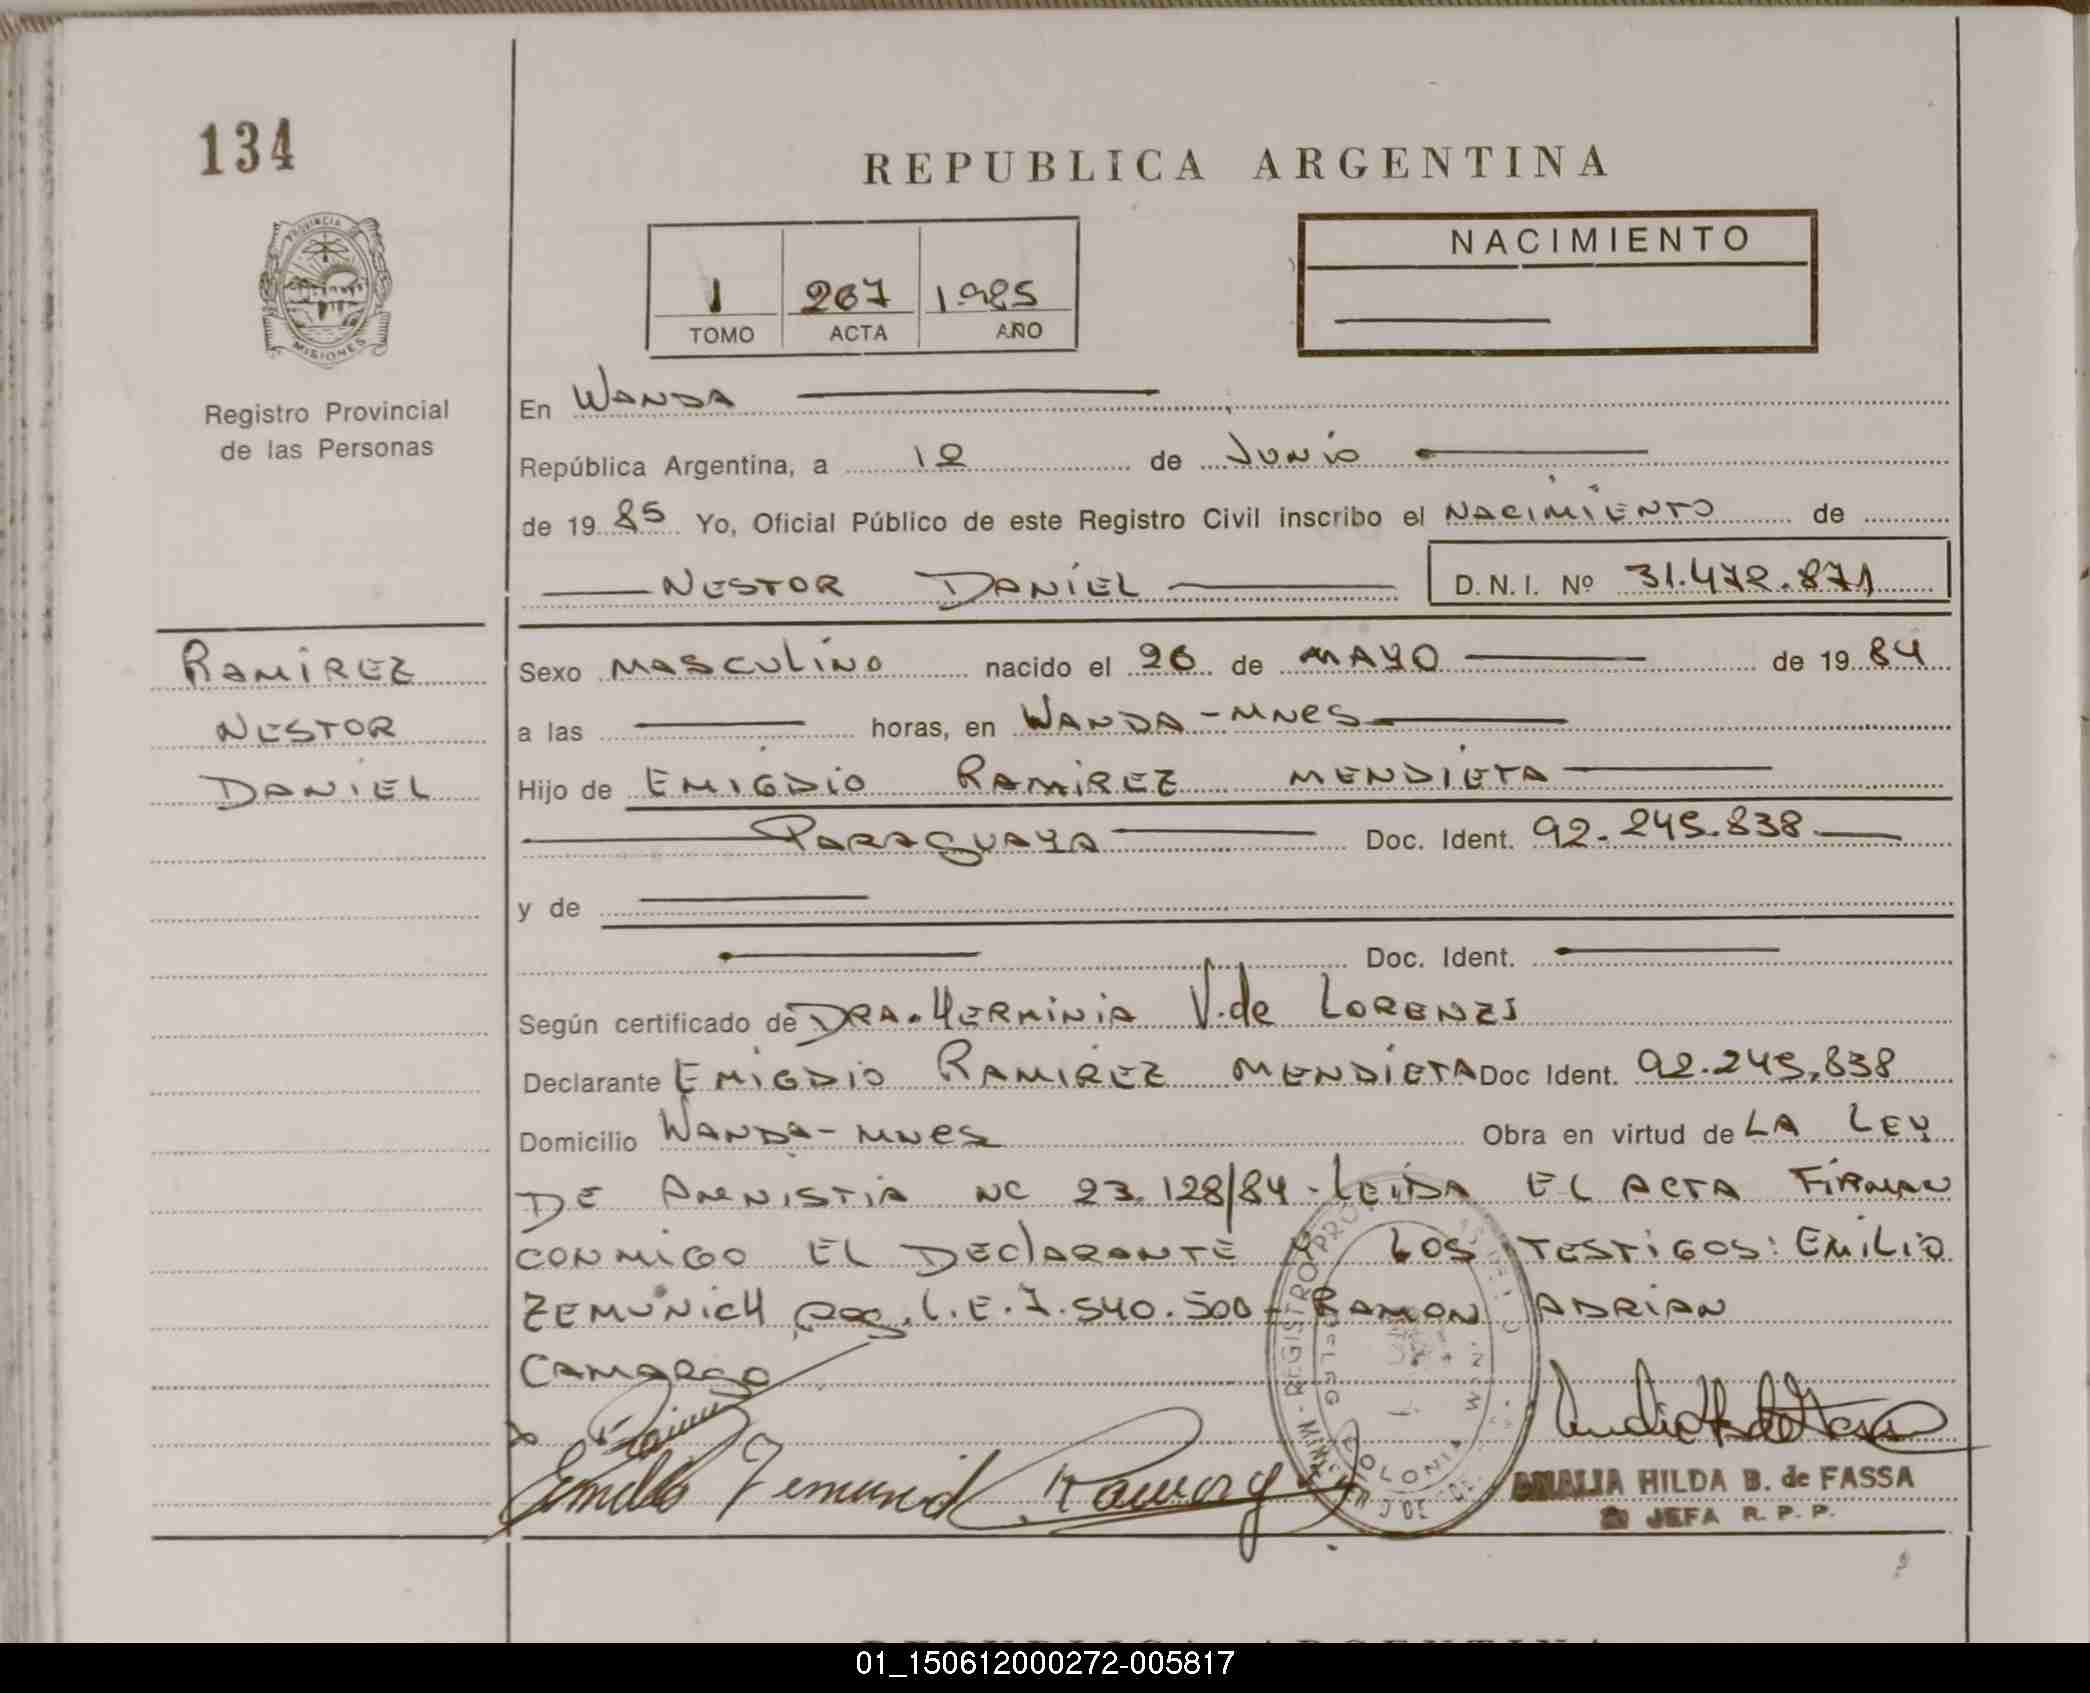 134
REPUBLICA ARGENTINA
PROVINCIA DE
MISIONES
Registro Provincial
de las Personas
1 267 1985
TOMO ACTA AÑO
NACIMIENTO
En WANDA
República Argentina, a 12 de JUNIO
de 19 85 Yo, Oficial Público de este Registro Civil inscribo el NACIMIENTO de
NESTOR DANIEL D.N.I. Nº 31.472.871
RAMIREZ
NESTOR
DANIEL
Sexo MASCULINO nacido el 26 de MAYO de 19 84
a las horas, en WANDA-MNES
Hijo de EMIGDIO RAMIREZ MENDIETA
PARAGUAYA Doc. Ident. 92.245.838
y de
Doc. Ident.
Según certificado de DRA. HERMINIA V. de LORENZI
Declarante EMIGDIO RAMIREZ MENDIETA Doc Ident. 92.245.838
Domicilio WANDA-MNES Obra en virtud de LA LEY
DE AMNISTIA NC 23.128/84-LEIDA EL ACTA FIRMAN
CONMIGO EL DECLARANTE Y LOS TESTIGOS: EMILIO
ZEMUNICH L.E. 7.540.500- RAMON ADRIAN
CAMARGO
AMALIA HILDA B. de FASSA
JEFA R. P. P.
01_150612000272-005817